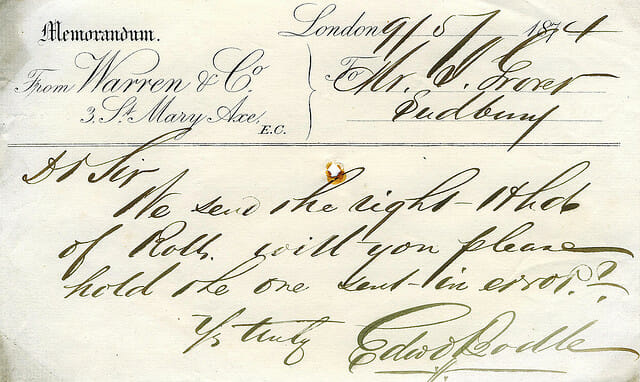 Memorandum.
London 9/5/ 1874
From Warren & Co.
To Mr. S. Grover
3, St. Mary Axe,
Sudbury
E.C.
Dr Sir
We send the right
of Roth. will you please
hold the one sent in error.?
Y/s truly